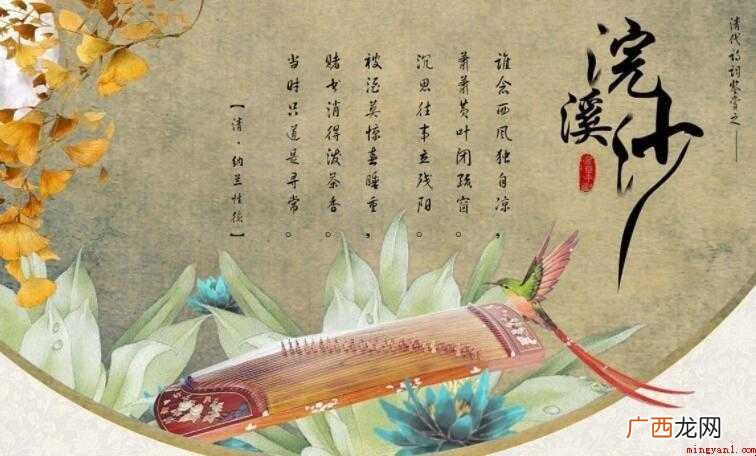 清代诗词鉴赏之——
浣溪沙
谁念西风独自凉，
萧萧黄叶闭疏窗。
沉思往事立残阳。
被酒莫惊春睡重，
赌书消得泼茶香。
当时只道是寻常。
【清·纳兰性德】
广西龙网
mingyan1.com